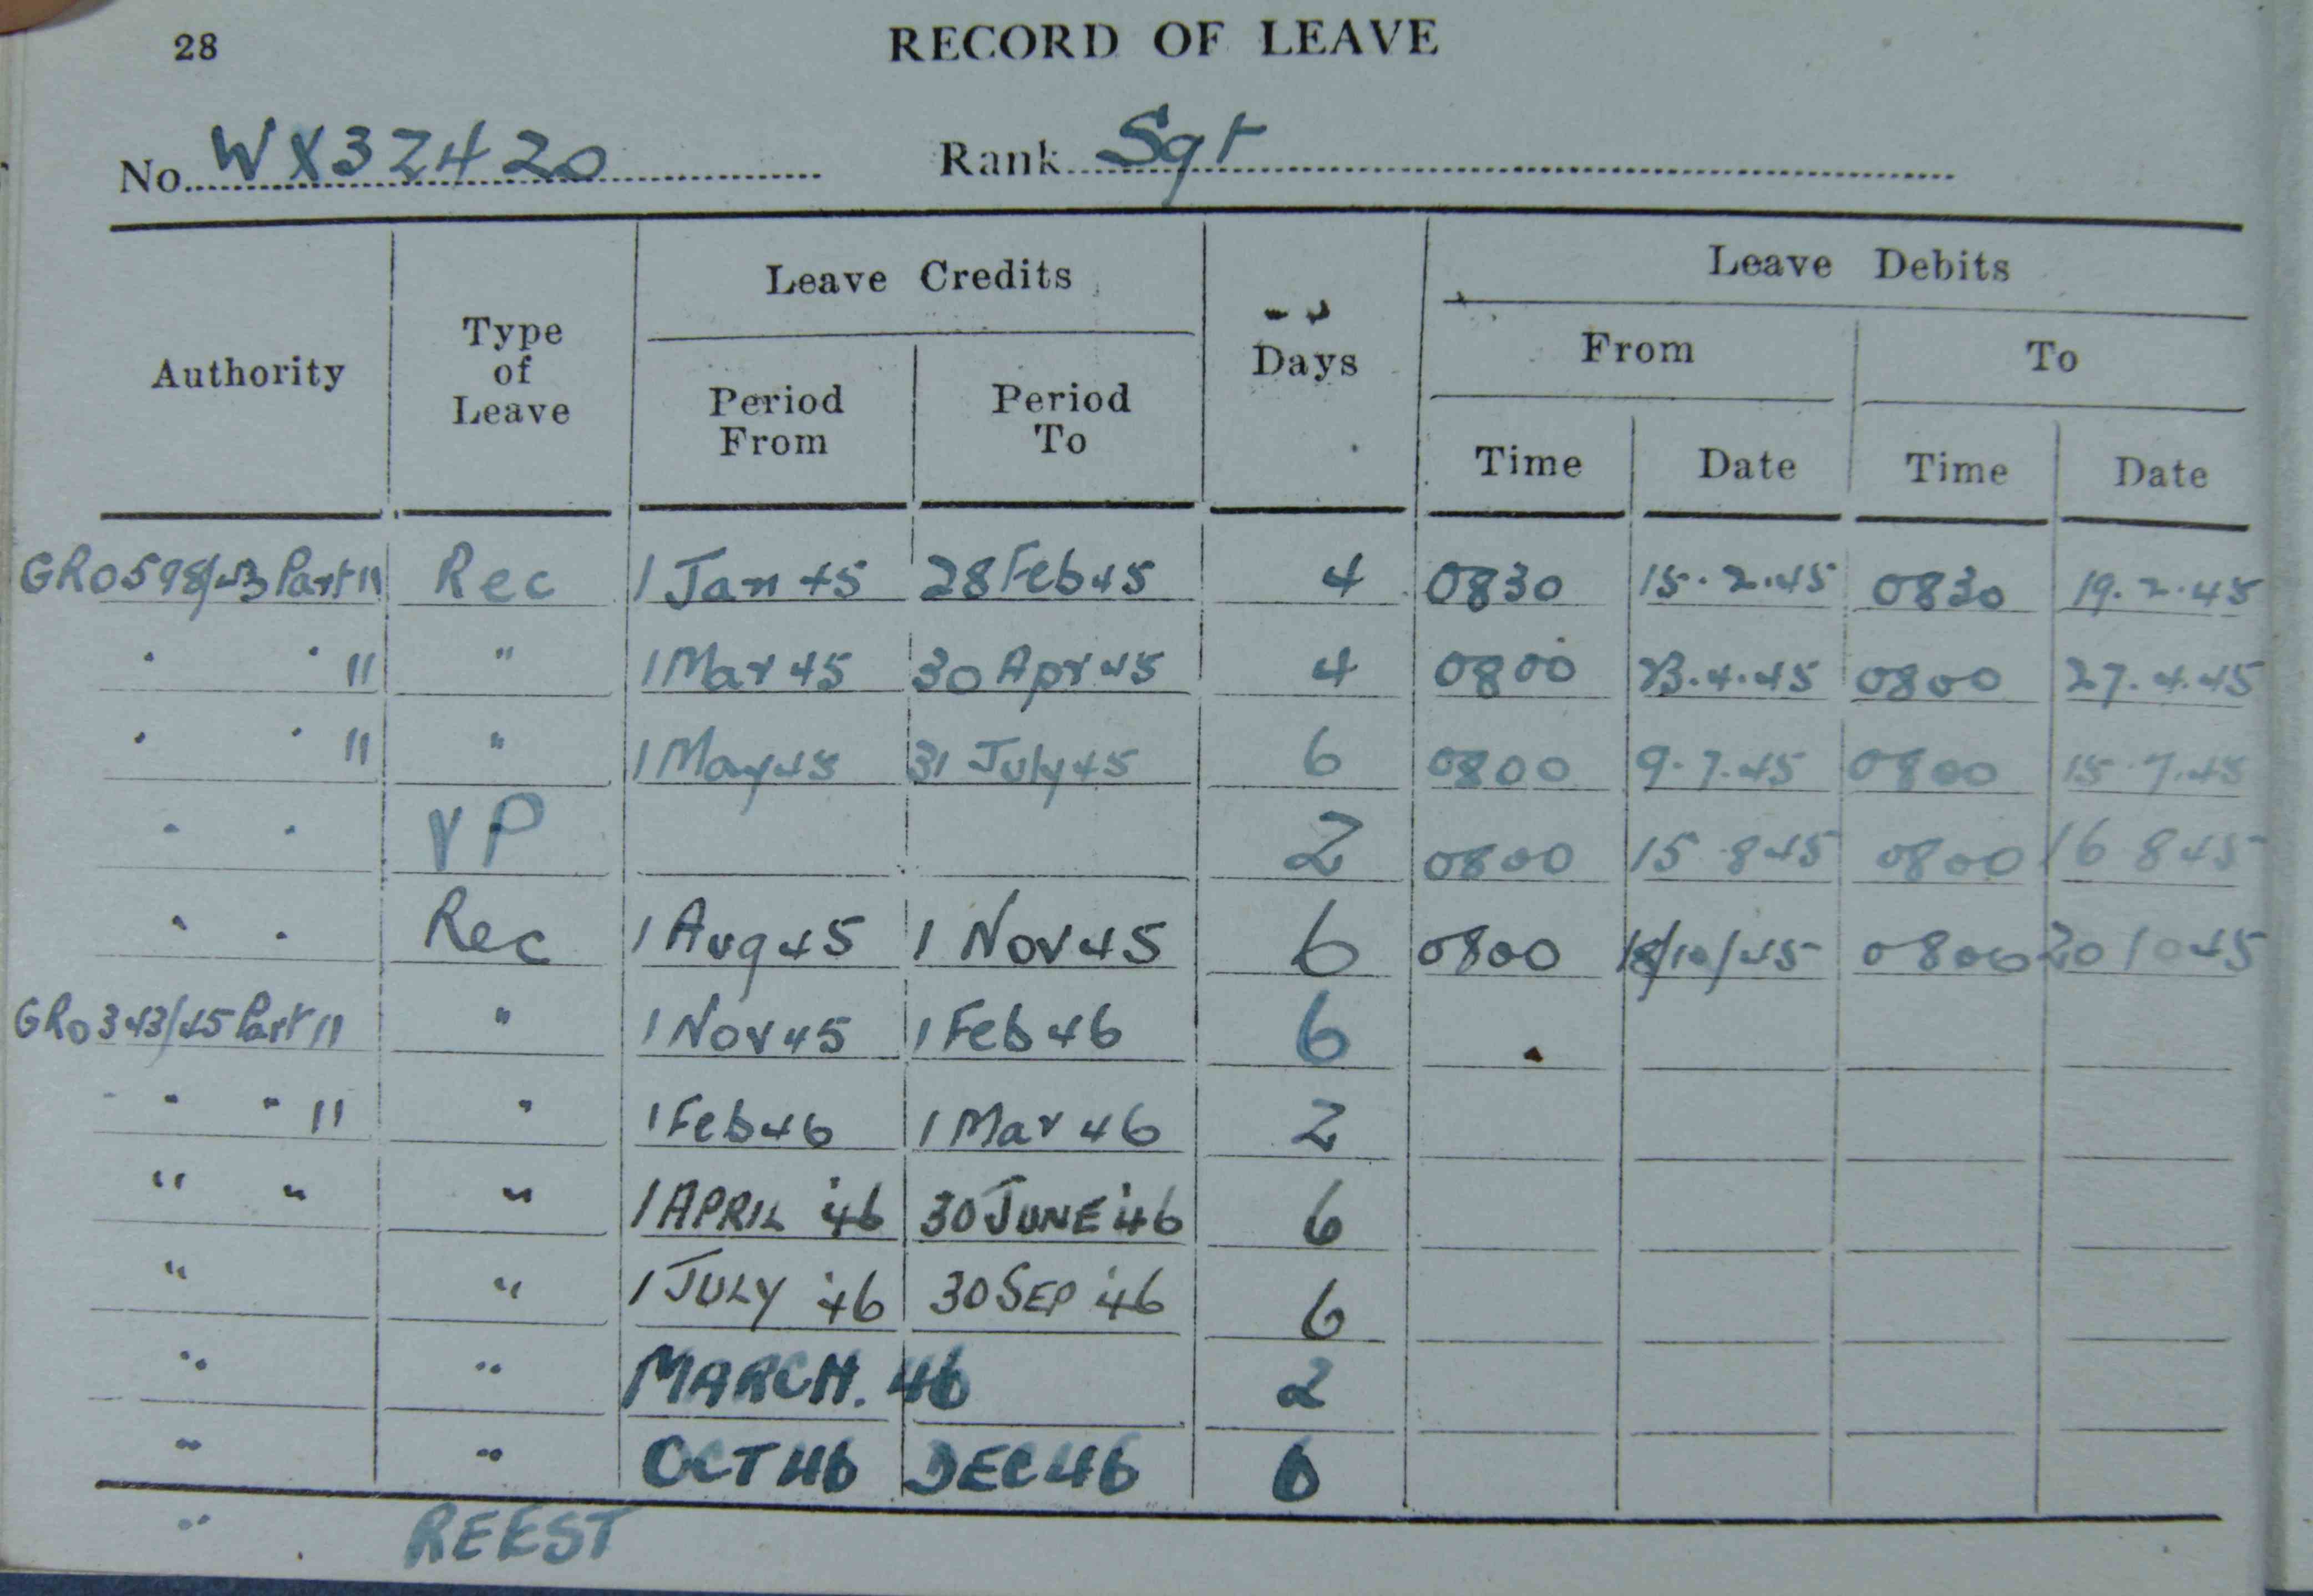 28
RECORD OF LEAVE
No. WX32420 Rank Sgt
Authority Type of Leave Leave Credits Days Leave Debits
Period From Period To From To
Time Date Time Date
GRO598/43 Part 11 Rec 1 Jan 45 28 Feb 45 4 0830 15.2.45 0830 19.2.45
" " 11 " 1 Mar 45 30 Apr 45 4 0800 23.4.45 0800 27.4.45
" " 11 " 1 May 45 31 July 45 6 0800 9.7.45 0800 15.7.45
" " VP 2 0800 15 8 45 0800 16 8 45
" " Rec 1 Aug 45 1 Nov 45 6 0800 /10/45 0800 20 10 45
GRO343/45 Part 11 " 1 Nov 45 1 Feb 46 6
" " " 11 " 1 Feb 46 1 Mar 46 2
" " " 1 APRIL '46 30 JUNE '46 6
" " 1 JULY '46 30 SEP '46 6
" " MARCH. 46 2
" " OCT 46 DEC 46 6
" REEST